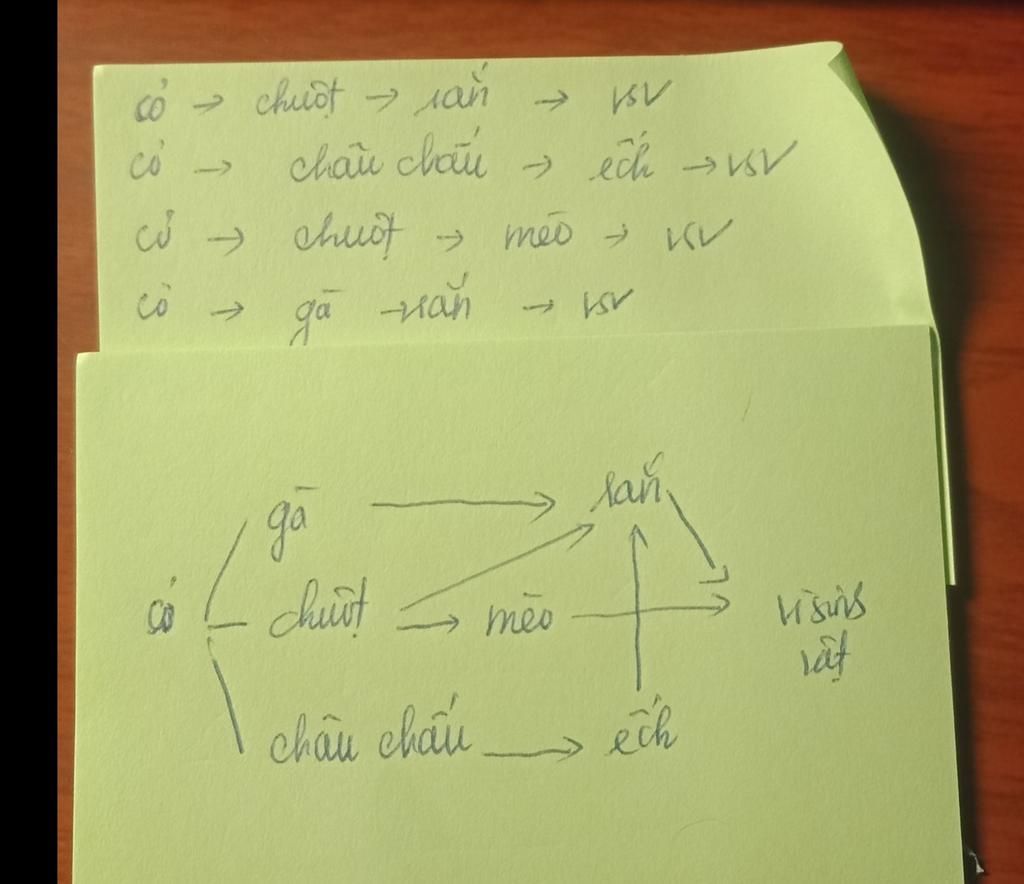 cỏ → chuột → rắn → VSV
cỏ → châu chấu → ếch → VSV
cỏ → chuột → mèo → VSV
cỏ → gà → rắn → VSV
gà → rắn
cỏ chuột → mèo → vi sinh
vật
châu chấu → ếch